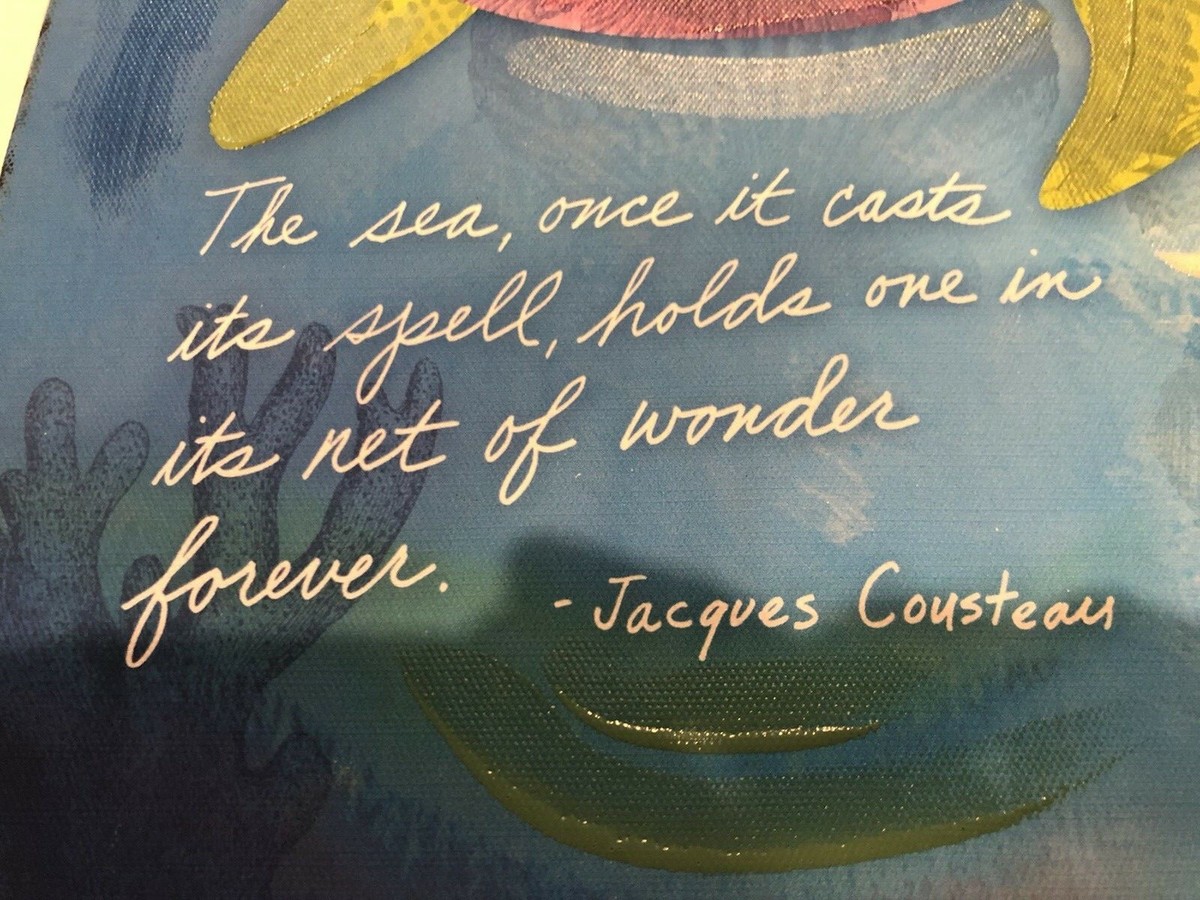 The sea, once it casts
its spell, holds one in
its net of wonder
forever.
- Jacques Cousteau